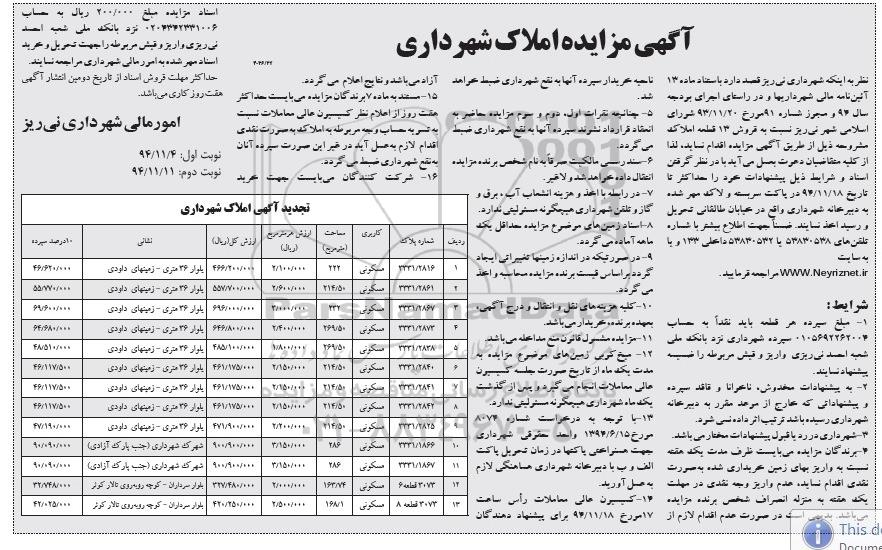 آگهی مزایده املاک شهرداری
۴۰۲۶/۴۲
نظر به اینکه شهرداری نی‌ریز قصد دارد باستناد ماده ۱۳
آئین‌نامه مالی شهرداریها و در راستای اجرای بودجه
سال ۹۴ و مجوز شماره ۹۱مورخ ۹۳/۱۱/۲۰ شورای
اسلامی شهر نی‌ریز نسبت به فروش ۱۳ قطعه املاک
مشروحه ذیل از طریق آگهی مزایده اقدام نماید، لذا
از کلیه متقاضیان دعوت بعمل می‌آید با در نظر گرفتن
اسناد و شرایط ذیل پیشنهادات خود را حداکثر تا
تاریخ ۹۴/۱۱/۱۸ در پاکت سربسته و لاک مهر شده
به دبیرخانه شهرداری واقع در خیابان طالقانی تحویل
و رسید اخذ نمایند. ضمناً جهت اطلاع بیشتر با شماره
تلفن‌های ۵۳۸۳۰۵۳۸ یا ۵۳۸۳۰۵۳۲ داخلی ۱۳۳ و یا
به سایت
WWW.Neyriznet.ir مراجعه فرمایید.
شرایط :
۱- مبلغ سپرده هر قطعه باید نقداً به حساب
۰۱۰۵۶۹۲۲۶۲۰۰۴ سپرده شهرداری نزد بانک ملی
شعبه احمد نی‌ریزی واریز و قبض مربوطه را ضمیمه
پیشنهاد نمایند.
۲- به پیشنهادات مخدوش، ناخوانا و فاقد سپرده
و پیشنهاداتی که خارج از موعد مقرر به دبیرخانه
شهرداری رسیده باشد ترتیب اثر داده نمی شود.
۳-شهرداری در رد یا قبول پیشنهادات مختار می‌باشد.
۴-برندگان مزایده می‌بایست ظرف مدت یک هفته
نسبت به واریز بهای زمین خریداری شده به‌صورت
نقدی اقدام نماید، عدم واریز وجه نقدی در مهلت
یک هفته به منزله انصراف شخص برنده مزایده
می‌باشد. بدیهی است در صورت عدم اقدام لازم از
ناحیه خریدار سپرده آنها به نفع شهرداری ضبط خواهد
شد.
۵- چنانچه نفرات اول، دوم و سوم مزایده حاضر به
انعقاد قرارداد نشوند سپرده آنها به نفع شهرداری ضبط
می‌گردد.
۶-سند رسمی مالکیت صرفاً به نام شخص برنده مزایده
انتقال داده خواهد شد و لاغیر.
۷- در رابطه با اخذ و هزینه انشعاب آب ، برق و
گاز و تلفن شهرداری هیچگونه مسئولیتی ندارد.
۸-اسناد زمین‌های موضوع مزایده حداقل یک
ماهه آماده می‌گردد.
۹- در صورتیکه در اندازه زمینها تغییراتی ایجاد
گردد بر اساس قیمت برنده مزایده محاسبه و اخذ
می گردد.
۱۰-کلیه هزینه‌های نقل و انتقال و درج آگهی،
بعهده برنده، خریدار می‌باشد.
۱۱-مزایده مشمول قانون منع مداخله می‌باشد.
۱۲- میخ کوبی زمین‌های موضوع مزایده به
مدت یک ماه از تاریخ صورت جلسه کمیسیون
عالی معاملات انجام می‌گردد و پس از گذشت
یک ماه شهرداری هیچگونه مسئولیتی ندارد.
۱۳-با توجه به درخواست شماره ۸۰۷۴
مورخ۱۳۹۴/۶/۱۵ واحد حقوقی شهرداری
جهت همترازی پاکتها در زمان تحویل پاکت
الف و ب با دبیرخانه شهرداری هماهنگی لازم
به عمل آورید.
۱۴-کمیسیون عالی معاملات رأس ساعت
۱۷مورخ ۹۴/۱۱/۱۸ برای پیشنهاد دهندگان
آزاد می‌باشد و نتایج اعلام می گردد.
۱۵-مستند به ماده ۷ برندگان مزایده می‌بایست حداکثر
هفت روز از اعلام نظر کمیسیون عالی معاملات نسبت
به تسویه حساب وجه مربوطه به املاک به صورت نقدی
اقدام لازم به‌عمل آید در غیر این صورت سپرده آنان
به نفع شهرداری ضبط می‌گردد.
۱۶- شرکت کنندگان می‌بایست جهت خرید
اسناد مزایده مبلغ ۲۰۰/۰۰۰ ریال به حساب
۰۲۰۴۳۴۲۳۳۱۰۰۶ نزد بانک ملی شعبه احمد
نی‌ریزی واریز و قبض مربوطه را جهت تحویل و خرید
اسناد مهر شده به امور مالی شهرداری مراجعه نمایند.
حداکثر مهلت فروش اسناد از تاریخ دومین انتشار آگهی
هفت روز کاری می‌باشد.
امور مالی شهرداری نی‌ریز
نوبت اول: ۹۴/۱۱/۴
نوبت دوم: ۹۴/۱۱/۱۱
تجدید آگهی املاک شهرداری
ردیف شماره پلاک کاربری مساحت (مترمربع) ارزش هرمترمربع (ریال) ارزش کل(ریال) نشانی ۱۰درصد سپرده
۱ ۳۳۳۱/۲۸۱۶ مسکونی ۲۲۲ ۲/۱۰۰/۰۰۰ ۴۶۶/۲۰۰/۰۰۰ بلوار ۳۶ متری - زمینهای داودی ۴۶/۶۲۰/۰۰۰
۲ ۳۳۳۱/۲۸۶۱ مسکونی ۲۱۴/۵۰ ۲/۶۰۰/۰۰۰ ۵۵۷/۷۰۰/۰۰۰ بلوار ۳۶ متری - زمینهای داودی ۵۵/۷۷۰/۰۰۰
۳ ۳۳۳۱/۲۸۶۷ مسکونی ۲۳۲ ۳/۰۰۰/۰۰۰ ۶۹۶/۰۰۰/۰۰۰ بلوار ۳۶ متری - زمینهای داودی ۶۹/۶۰۰/۰۰۰
۴ ۳۳۳۱/۲۸۷۳ مسکونی ۲۶۹/۵۰ ۲/۴۰۰/۰۰۰ ۶۴۶/۸۰۰/۰۰۰ بلوار ۳۶ متری - زمینهای داودی ۶۴/۶۸۰/۰۰۰
۵ ۳۳۳۱/۲۸۳۸ مسکونی ۲۶۹/۵۰ ۱/۸۰۰/۰۰۰ ۴۸۵/۱۰۰/۰۰۰ بلوار ۳۶ متری - زمینهای داودی ۴۸/۵۱۰/۰۰۰
۶ ۳۳۳۱/۲۸۴۰ مسکونی ۲۱۴/۵۰ ۲/۱۵۰/۰۰۰ ۴۶۱/۱۷۵/۰۰۰ بلوار ۳۶ متری - زمینهای داودی ۴۶/۱۱۷/۵۰۰
۷ ۳۳۳۱/۲۸۴۱ مسکونی ۲۱۴/۵۰ ۲/۱۵۰/۰۰۰ ۴۶۱/۱۷۵/۰۰۰ بلوار ۳۶ متری - زمینهای داودی ۴۶/۱۱۷/۵۰۰
۸ ۳۳۳۱/۲۸۴۲ مسکونی ۲۱۴/۵۰ ۲/۱۵۰/۰۰۰ ۴۶۱/۱۷۵/۰۰۰ بلوار ۳۶ متری - زمینهای داودی ۴۶/۱۱۷/۵۰۰
۹ ۳۳۳۱/۲۸۲۵ مسکونی ۲۱۴/۵۰ ۲/۲۰۰/۰۰۰ ۴۷۱/۹۰۰/۰۰۰ بلوار ۳۶ متری - زمینهای داودی ۴۷/۱۹۰/۰۰۰
۱۰ ۳۳۳۱/۱۸۶۶ مسکونی ۲۸۶ ۳/۱۵۰/۰۰۰ ۹۰۰/۹۰۰/۰۰۰ شهرک شهرداری (جنب پارک آزادی) ۹۰/۰۹۰/۰۰۰
۱۱ ۳۳۳۱/۱۸۶۷ مسکونی ۲۸۶ ۳/۱۵۰/۰۰۰ ۹۰۰/۹۰۰/۰۰۰ شهرک شهرداری (جنب پارک آزادی) ۹۰/۰۹۰/۰۰۰
۱۲ ۳۰۷۳ قطعه۶ مسکونی ۱۶۳/۷۴ ۲/۰۰۰/۰۰۰ ۳۲۷/۴۸۰/۰۰۰ بلوار سرداران - کوچه روبه‌روی تالار کوثر ۳۲/۷۴۸/۰۰۰
۱۳ ۳۰۷۳ قطعه ۸ مسکونی ۱۶۸/۱ ۲/۵۰۰/۰۰۰ ۴۲۰/۲۵۰/۰۰۰ بلوار سرداران - کوچه روبه‌روی تالار کوثر ۴۲/۰۲۵/۰۰۰
ParsNamadData
۰۲۱-۸۸۳۴۹۶۷۰-۵
This d
Docume